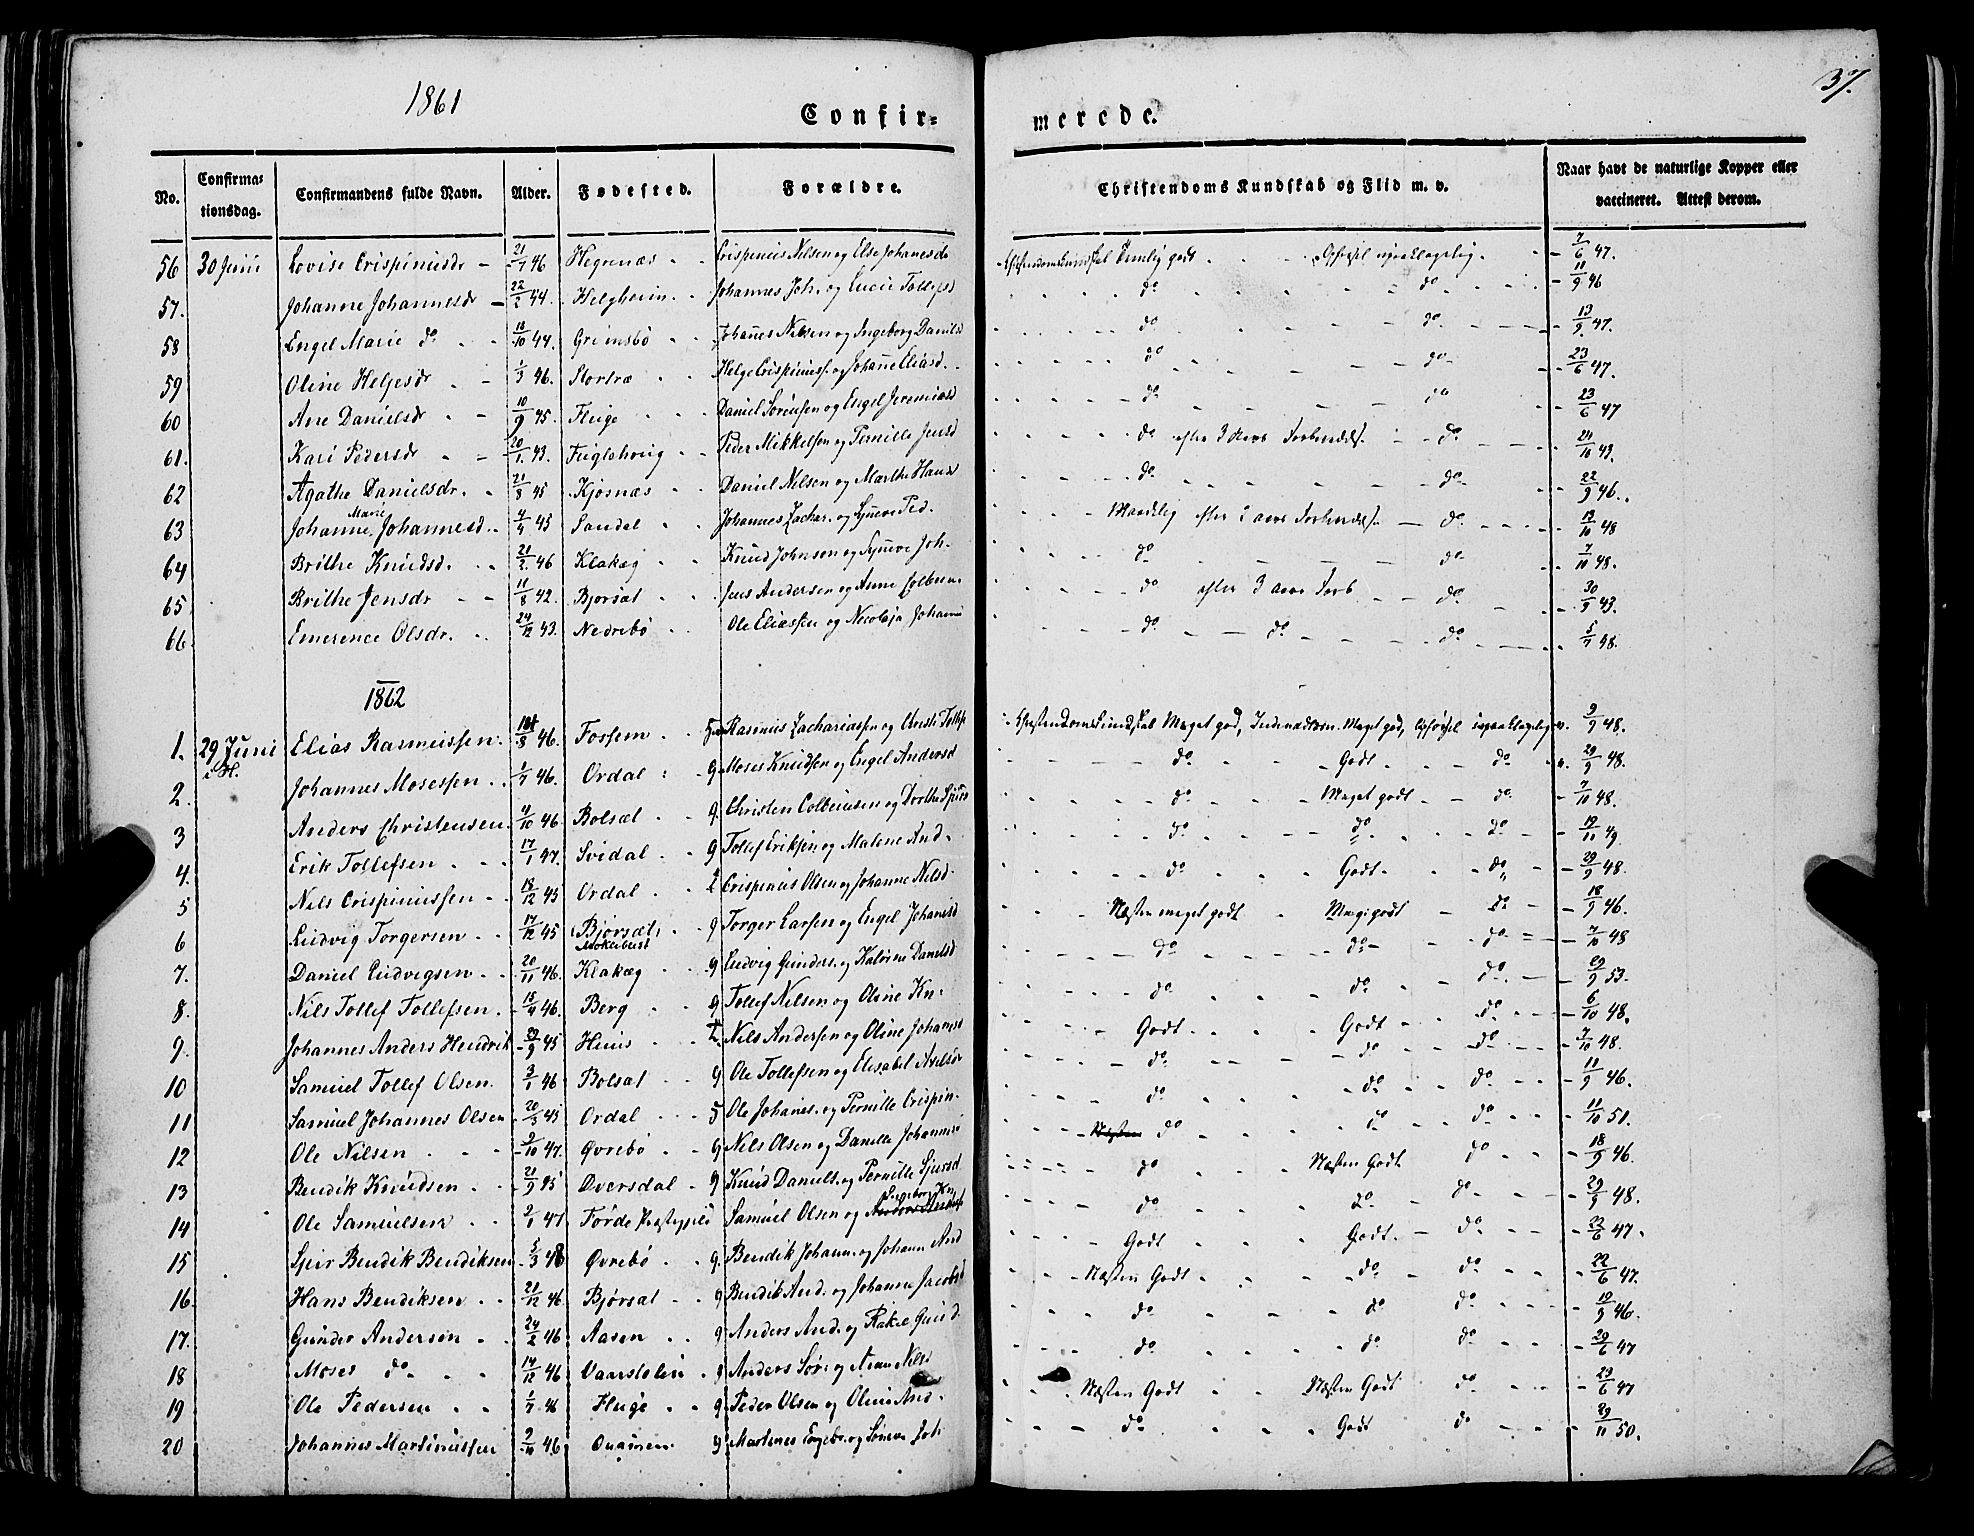 37.
1861
Confir-
merede.
No. Confirma-tionsdag. Confirmandens fulde Navn. Alder. Fødested. Forældre. Christendoms Kundskab og Flid m. v. Naar havt de naturlige Kopper eller vaccineret. Attest derom.
56 30 Juni Lovise Crispinusdr 21/7 46 Hegrenæs Crispinus Nilsen og Else Johanesdr Temlig godt 7/6 47.
57. Johanne Johannesdr 22/2 44. Helgheim Johannes Joh. og Lucie Tollefsd do do 11/9 46
58 Engel Marie do 18/10 44. Grimsbø Johanes Nilsen og Ingeborg Danilsd do do 13/9 47.
59 Oline Helgesdr 1/3 46. Stortræ Helge Crispinus. og Johane Eliasd. do do 23/6 47.
60 Ane Danielsdr 10/9 45. Fluge Daniel Sørensen og Engel Jeremiasd do do 23/6 47
61. Kari Pedersdr 20/1 43. Fuglehoug Peder Mikkelsen og Pernille Jensd do efter 3 Aars do 24/10 43.
62 Agathe Danielsdr. 21/8 45 Kjøsnæs Daniel Nilsen og Marthe Hansd do do 22/9 46.
63 Johanne Marie Johannesd. 4/4 45 Sandal Johannes Zachar. og Synneve Ped. Maadelig efter 2 aars do 13/10 48
64 Brithe Knudsd. 21/2 46 Klakæg Knud Johnsen og Synneve Joh. do do 7/10 48.
65 Brithe Jensdr 11/8 42. Bjørsæt Jens Andersen og Anne Colbens. do efter 3 aars Forb do 30/9 43.
66 Emerence Olsdr. 24/12 43. Nedrebø Ole Eliassen og Nicolaja do do do 5/7 48.
1862
1. 29 Juni Elias Rasmussen 18/8 46. Fossem Rasmus Zachariassen og Christi Christendomskundskab Meget god, Meget god, 9/9 48.
2. Johannes Mosessen 1/7 46. Ordal 9 Moses Knudsen og Engel Andersd do Godt do 29/9 48.
3 Anders Christensen 4/10 46 Bolsæt 9 Christen Colbensen og Dorthe do Meget godt do 7/10 48.
4. Erik Tollefsen 17/1 47. Svidal 9 Tollef Eriksen og Malene And. do do do 19/11 49.
5 Nils Crispinussen 18/12 45 Ordal Crispinus Olsen og Johanne Nilsd. do Godt do 29/9 48.
6 Ludvig Torgersen 17/12 45 Bjørsæt 9 Torger Larsen og Engel Johansd Næsten meget godt Megi godt do 18/9 46.
7. Daniel Ludvigsen 20/11 46. Klakæg 9 Ludvig Gunders. og Danielsd do do do 7/10 48
8. Nils Tollef Tollefsen 18/4 46. Berg 9 Tollef Nilsen og Oline Kn. do do do 29/9 53.
9. Johannes Anders Hendrik 29/9 45 Huus Nils Andersen og Oline Johansd Godt Godt do 6/10 48.
10 Samuel Tollef Olsen. 3/1 46 Bolsæt 9 Ole Tollefsen og Elisabet do do do 7/10 48.
11 Samuel Johannes Olsen 20/3 45 Ordal 5 Ole Johanes. og Pernille Crispin. do do do 11/9 46.
12 Ole Nilsen 9/10 47. Øvrebø 9 Nils Olsen og Danille Johannes do do do 11/10 51.
13 Bendik Knudsen 21/9 45 Dversdal 9 Knud Daniels. og Pernille Sjursd do Næsten Godt do 18/9 46.
14 Ole Samuelsen 2/1 47 Førde Præstegjeld Samuel Olsen og Ingeborg Kn. do do do 29/9 48.
15 Bendik Bendiksen 5/3 48 Øvrebø 9. Bendik Johann. og Johann And Godt Godt do 22/6 47.
16 Hans Bendiksen 21/12 46. Bjørsæt 9 Bendik And. og Johanne Jacobsd Næsten Godt do do 22/6 47.
17. Gunder Andersen 24/2 46 Aasen 9 Anders And. og Rakel Gund. do do do 19/9 46.
18 Moses do 14/12 46 9 Anders Sør. og Anne Nilsd do do do 29/6 47
19 Ole Pedersen 1/7 46 Fluge 9 Peder Olsen og Oline And. Næsten Godt Næsten Godt do 23/6 47
20 Johannes Martinussen 2/11 46 9 Martines Engebr. og Joh do Godt do 29/11 50.